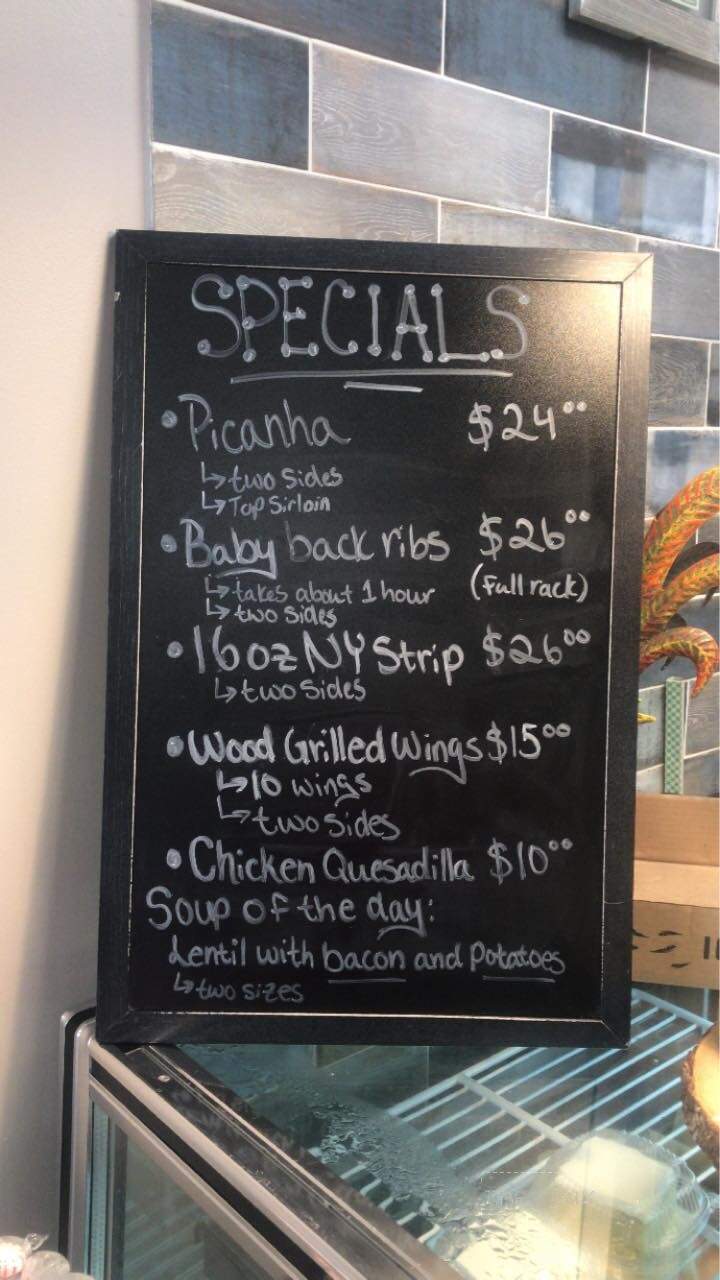 SPECIALS
• Picanha $24⁰⁰
↳ two sides
↳ Top Sirloin
• Baby back ribs $26⁰⁰
↳ takes about 1 hour (full rack)
↳ two sides
• 16oz NY Strip $26⁰⁰
↳ two sides
• Wood Grilled Wings $15⁰⁰
↳ 10 wings
↳ two sides
• Chicken Quesadilla $10⁰⁰
Soup of the day:
Lentil with bacon and potatoes
↳ two sizes